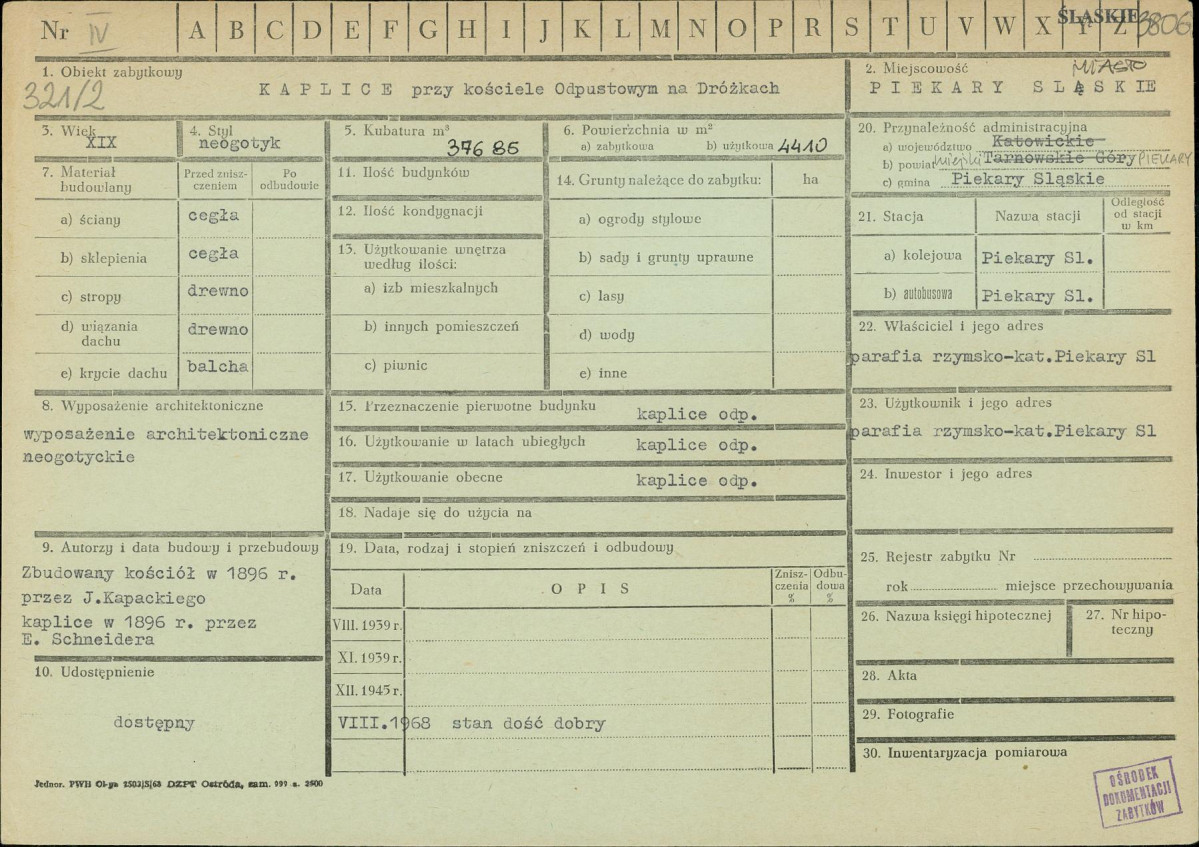 Nr IV A B C D E F G H I J K L M N O P R S T U V W X Y Z ŚLĄSKIE 3806
1. Obiekt zabytkowy
321/2
KAPLICE przy kościele Odpustowym na Dróżkach
2. Miejscowość MIASTO
PIEKARY SLĄSKIE
3. Wiek
XIX
4. Styl
neogotyk
5. Kubatura m³
376 85
6. Powierzchnia w m²
a) zabytkowa b) użytkowa 4410
20. Przynależność administracyjna
a) województwo Katowickie
b) powiat miejski Tarnowskie Góry PIEKARY
c) gmina Piekary Sląskie
7. Materiał budowlany
Przed zniszczeniem
Po odbudowie
a) ściany cegła
b) sklepienia cegła
c) stropy drewno
d) wiązania dachu drewno
e) krycie dachu balcha
11. Ilość budynków
12. Ilość kondygnacji
13. Użytkowanie wnętrza
według ilości:
a) izb mieszkalnych
b) innych pomieszczeń
c) piwnic
14. Grunty należące do zabytku: ha
a) ogrody stylowe
b) sady i grunty uprawne
c) lasy
d) wody
e) inne
21. Stacja Nazwa stacji Odległość od stacji w km
a) kolejowa Piekary Sl.
b) autobusowa Piekary Sl.
22. Właściciel i jego adres
parafia rzymsko-kat.Piekary Sl
8. Wyposażenie architektoniczne
wyposażenie architektoniczne
neogotyckie
15. Przeznaczenie pierwotne budynku kaplice odp.
16. Użytkowanie w latach ubiegłych kaplice odp.
17. Użytkowanie obecne kaplice odp.
18. Nadaje się do użycia na
23. Użytkownik i jego adres
parafia rzymsko-kat.Piekary Sl
24. Inwestor i jego adres
9. Autorzy i data budowy i przebudowy
Zbudowany kościół w 1896 r.
przez J.Kapackiego
kaplice w 1896 r. przez
E. Schneidera
10. Udostępnienie
dostępny
19. Data, rodzaj i stopień zniszczeń i odbudowy
Data OPIS Zniszczenia % Odbudowa %
VIII. 1939 r.
XI. 1939 r.
XII. 1945 r.
VIII.1968 stan dość dobry
25. Rejestr zabytku Nr
rok miejsce przechowywania
26. Nazwa księgi hipotecznej
27. Nr hipoteczny
28. Akta
29. Fotografie
30. Inwentaryzacja pomiarowa
Jednor. PWH Ol-ga 2502|5|68 DZPT Ostróda, zam. 999 n. 2500
OŚRODEK
DOKUMENTACJI
ZABYTKÓW